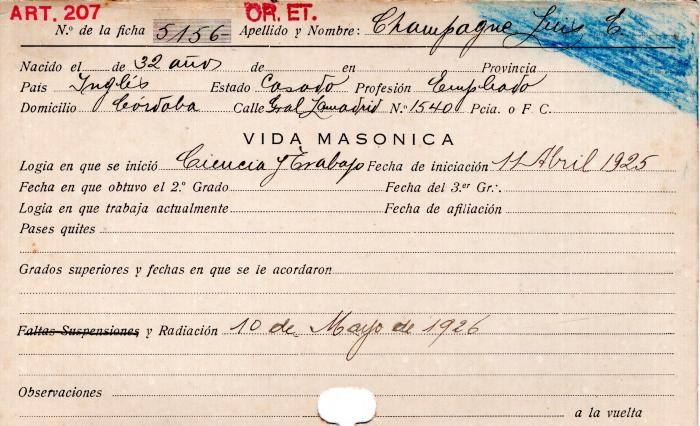 ART. 207 OR. ET.
N.º de la ficha 5156- Apellido y Nombre: Champagne Luis E.
Nacido el de 32 años de en Provincia
País Inglés Estado Casado Profesión Empleado
Domicilio Córdoba Calle Gral Lamadrid N.º 1540 Pcia. o F. C.
VIDA MASONICA
Logia en que se inició Ciencia y Trabajo Fecha de iniciación 11 Abril 1925
Fecha en que obtuvo el 2.º Grado Fecha del 3.er Gr∴
Logia en que trabaja actualmente Fecha de afiliación
Pases quites
Grados superiores y fechas en que se le acordaron
Faltas Suspensiones y Radiación 10 de Mayo de 1926
Observaciones
a la vuelta